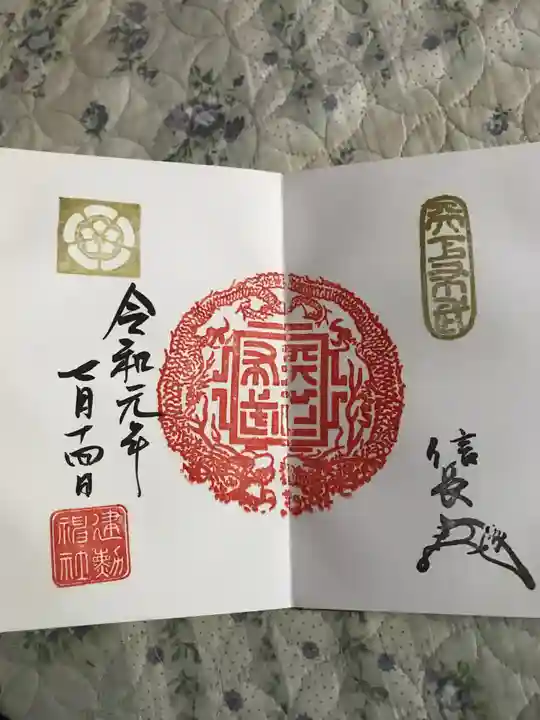 天下布武
信長
天下布武
令和元年
七月十四日
建勲神社